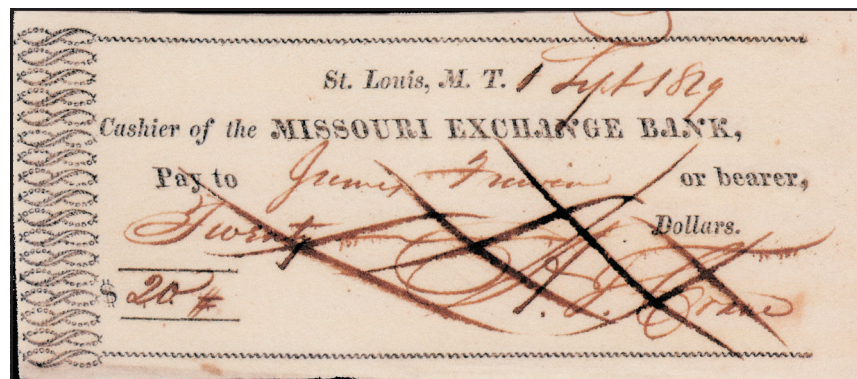 St. Louis, M. T. 1 Sept 1819
Cashier of the MISSOURI EXCHANGE BANK,
Pay to James Irwin or bearer,
Twenty Dollars.
$ 20 #
Crane